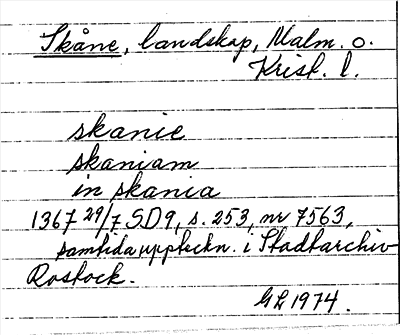 Skåne, landskap, Malm. o.
Krist. l.
skanie
skaniam
in skania
1367 29/7 SD9, s. 253, nr 7563,
samtida uppteckn. i Stadtarchiv
Rostock.
GL 1974.